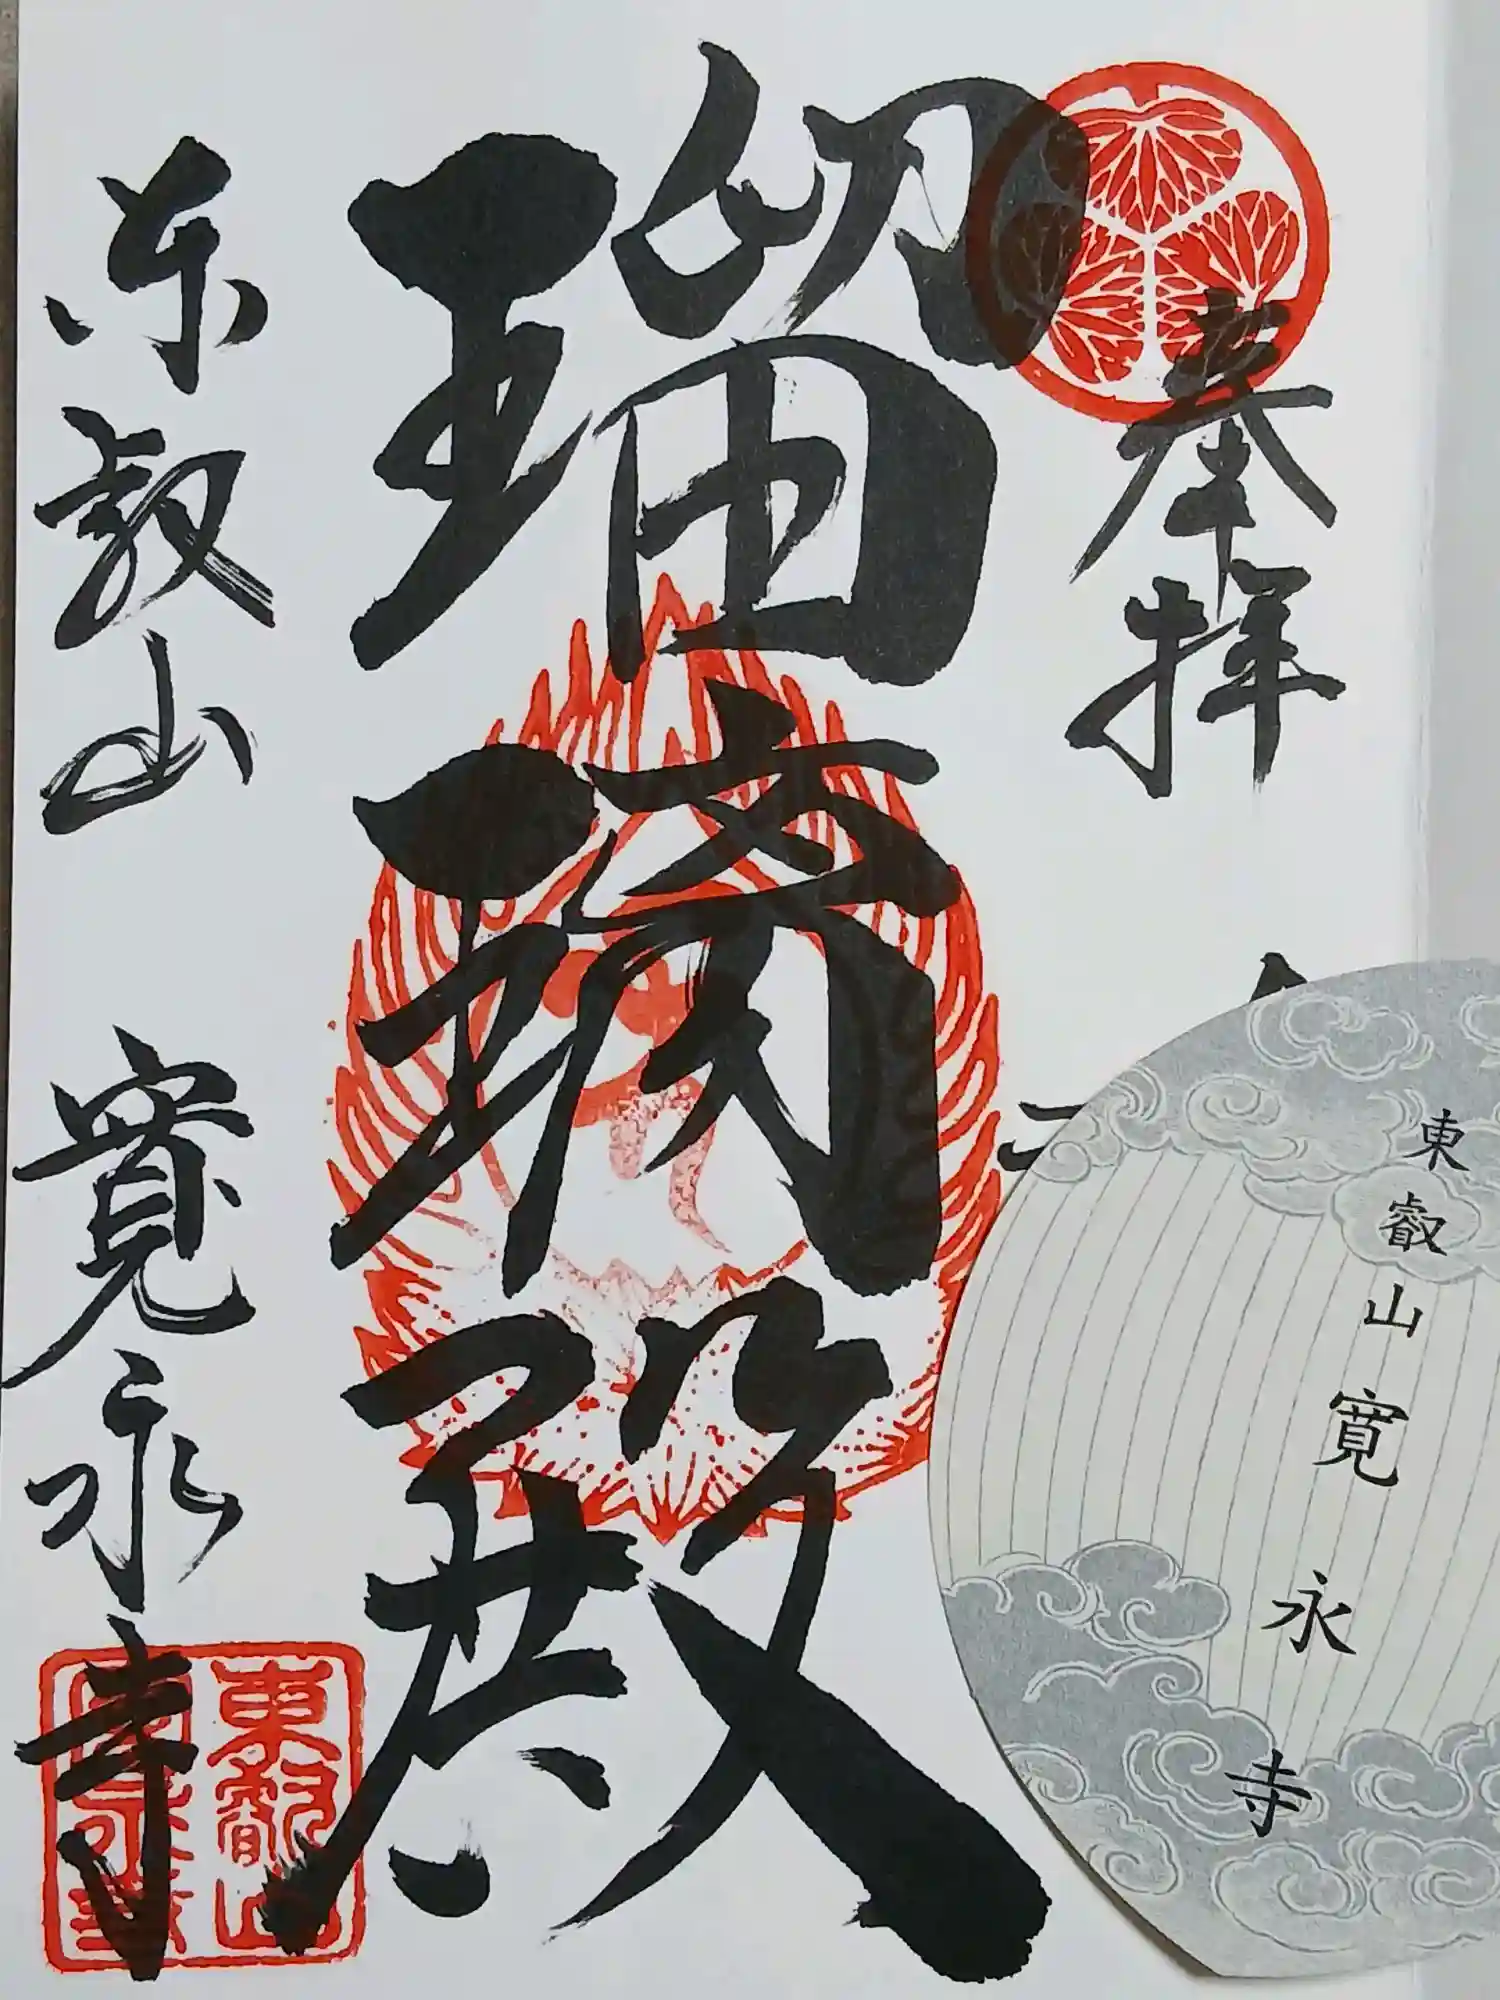 奉拝
瑠璃殿
東叡山 寛永寺
東叡山
東叡山寛永寺